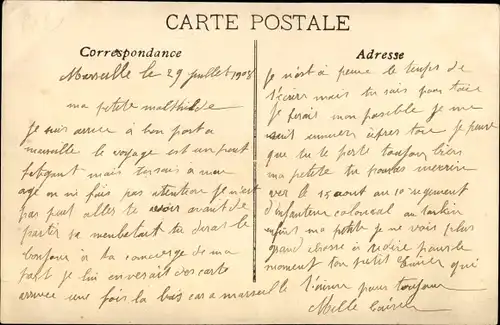 CARTE POSTALE
Correspondance
Marseille le 29 juillet 1908
ma petite mathilde
je suis arrivé à bon port a
marseille le voyage est un peut
fatigant mais tu sais a mon
age on ni fais pas attention je n'est
pas peut aller te voir avant de
partir sa
bonjour à la concierge de ma
part je lui enverait des carte
arrivée une fois la bas car a marseille
Adresse
je n'est à peine le temps de
t'écrire mais tu sais pour toie
je ferais mon posible je me
suis ennuier après toie je pense
que tu te porte toujour bien
ma petite tu pouras
ver le 15 aout au 10 regiment
d'infanterie colonial au tonkin
enfins ma petite je ne vois plus
grand chosse à te dire pour le
moment ton petit qui
t'aime pour toujour
Mille